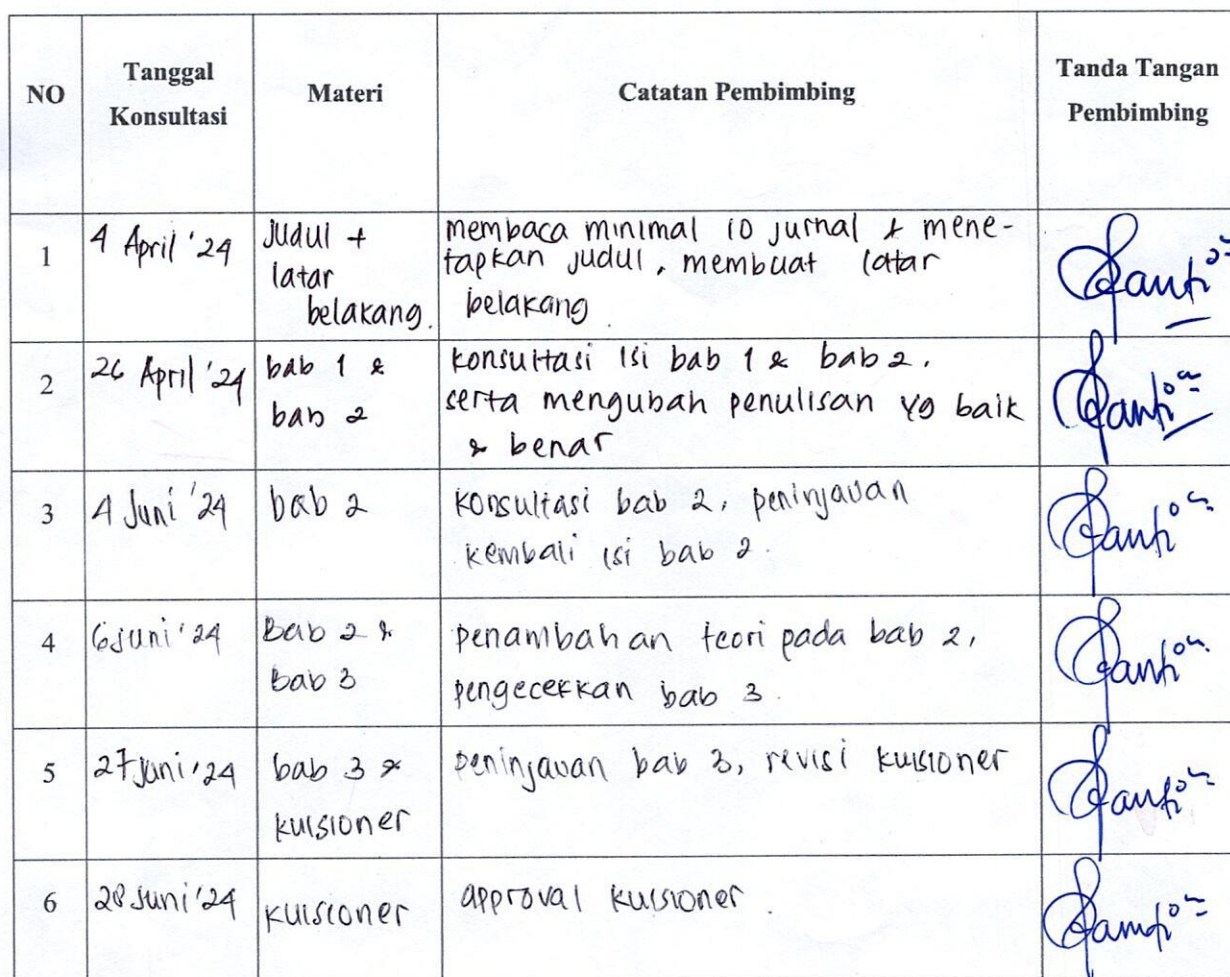 NO
Tanggal
Konsultasi
Materi
Catatan Pembimbing
Tanda Tangan
Pembimbing
1
4 April '24
Judul +
latar
belakang.
membaca minimal 10 jurnal & mene-
tapkan judul, membuat latar
belakang
2
26 April '24
bab 1 &
bab 2
konsultasi isi bab 1 & bab 2.
serta mengubah penulisan yg baik
& benar
3
4 Juni '24
bab 2
konsultasi bab 2, peninjauan
kembali isi bab 2.
4
6 juni '24
Bab 2 &
bab 3
penambahan teori pada bab 2,
pengecekkan bab 3.
5
27 juni '24
bab 3 &
kuisioner
peninjauan bab 3, revisi kuisioner
6
28 juni '24
kuisioner
approval kuisioner.